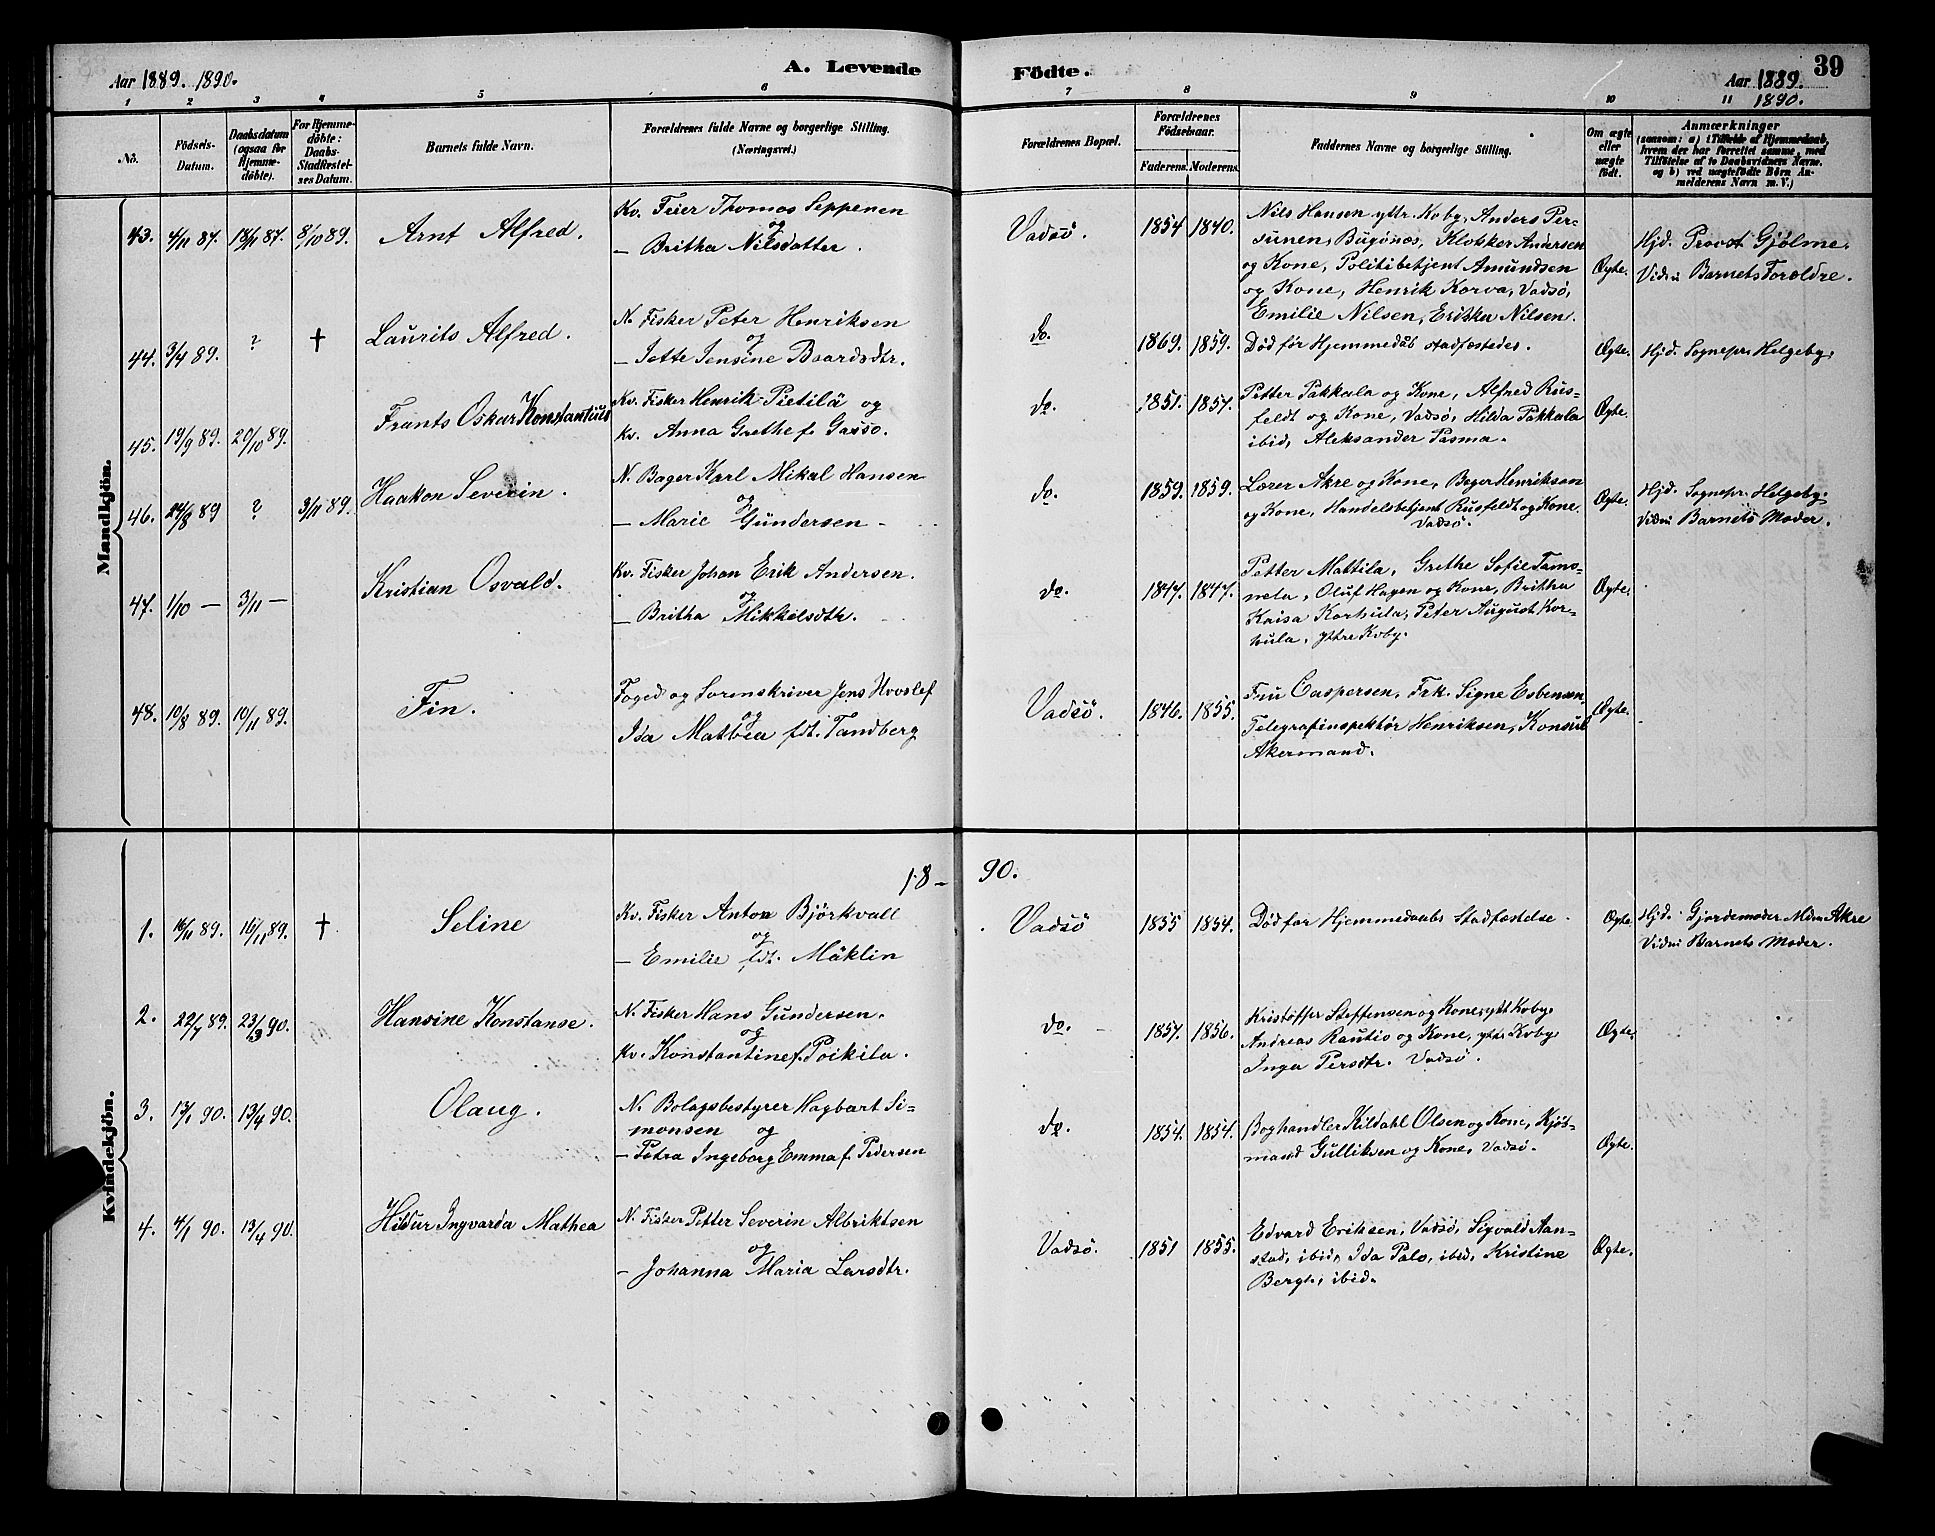 Aar 1889. 1890.
A. Levende Födte.
39
Aar 1889.
1890.
1 2 3 4 5 6 7 8 9 10 11
No.
Födsels-
Datum.
Daabsdatum
(ogsaa for
Hjemme-
döbte).
For Hjemme-
döbte:
Daabs-
Stadfestel-
ses Datum.
Barnets fulde Navn.
Forældrenes fulde Navne og borgerlige Stilling.
(Næringsvei.)
Forældrenes Bopæl.
Forældrenes
Födselsaar.
Faderens. Moderens.
Faddernes Navne og borgerlige Stilling.
Om ægte
eller
uægte
födt.
Anmærkninger
(saasom: a) Tilfælde af Hjemmedaab,
hvem der har forrettet samme, med
Tilföielse af to Daabsvidners Navne.
og b) ved uægtefödte Börn An-
melderens Navn m. V.)
Mandkjön.
43. 4/11 87. 18/11 87. 8/10 89. Arnt Alfred.
Kv. Feier Thomas Seppenen
og
— Britha Nilsdatter.
Vadsö. 1854 1840.
Nils Hansen yttr. Kvby, Anders Per-
sunen, Bugönæs, Klokker Andersen
og Kone, Politibetjent Amundsen
og Kone, Henrik Korva, Vadsø,
Emilie Nilsen, Erikka Nilsen.
Ægte.
Hjd. Provst Gjølme.
Vidn. Barnets Forældre.
44. 3/4 89. ? † Laurits Alfred.
N. Fisker Peter Henriksen
og
— Jette Jensine Baardsdtr.
do. 1869. 1859. Død før Hjemmedåb stadfæstedes. Ægte. Hjd. Sognepr. Helgeby.
45. 19/9 89. 20/10 89. Frants Oskar Konstantius
Kv. Fisker Henrik Pietilä og
Kv. Anna Grethe f. Gassø.
do. 1851. 1857.
Petter Pakkala og Kone, Alfred Rus-
feldt og Kone, Vadsø, Hilda Pakkala
ibid, Aleksander Pasma.
Ægte.
46. 24/8 89 ? 3/11 89. Haakon Severin.
N. Bager Karl Mikal Hansen
og
— Marie Gundersen —
do. 1859. 1859.
Lærer Akre og Kone, Bager Henriksen
og Kone, Handelsbetjent Rusfeldt og Kone
Vadsø.
Ægte.
Hjd. Sognepr. Helgeby.
Vidn. Barnets Moder.
47. 1/10 — 3/11 — Kristian Osvald.
Kv. Fisker Johan Erik Andersen.
og
— Britha Mikkelsdtr.
do. 1847. 1847.
Petter Mattila, Grethe Sofie Tams-
neta, Oluf Hagen og Kone, Britha
Kaisa Korhula, Peter August Kor-
hula, yttre Kvby.
Ægte.
48. 10/8 89. 10/11 89. Fin.
Foged og Sorenskriver Jens Hvoslef
og
Ida Mathea fdt. Tandberg
Vadsö. 1846. 1855.
Fru Caspersen, Frk. Signe Esbensen,
Telegrafinspektør Henriksen, Konsul
Akermand.
Ægte.
18 — 90.
Kvindekjön.
1. 16/11 89. 16/11 89. † Seline
Kv. Fisker Anton Björkvall
og
— Emilie fdt. Mäklin
Vadsö 1855 1854. Død før Hjemmedaabs Stadfæstelse. Ægte.
Hjd. Gjordemoder Mdm Akre
Vidn. Barnets Moder.
2. 22/7 89. 23/3 90. Hansine Konstanse.
N. Fisker Hans Gundersen.
og
Kv. Konstantine f. Poikila.
do. — 1857. 1856.
Kristoffer Steffensen og Kone, ytt Kvby,
Andreas Rautio og Kone, yttr. Kvby
Inga Persdtr. Vadsø.
Ægte.
3. 13/1 90. 13/4 90. Olaug.
N. Bolagsbestyrer Hagbart Si-
monsen og
— Petra Ingeborg Emma f. Pedersen
do. 1854. 1854.
Boghandler Kildahl Olsen og Kone, Kjøb-
mand Gulliksen og Kone, Vadsø.
Ægte.
4. 4/1 90. 13/4 90. Hildur Ingvarda Mathea
N. Fisker Petter Severin Albriktsen
og
— Johanna Maria Larsdtr.
Vadsö. 1851 1855.
Edvard Eriksen, Vadsø, Sigvald Aan-
stad, ibid, Ida Palo, ibid, Kristine
Berg, ibid.
Ægte.